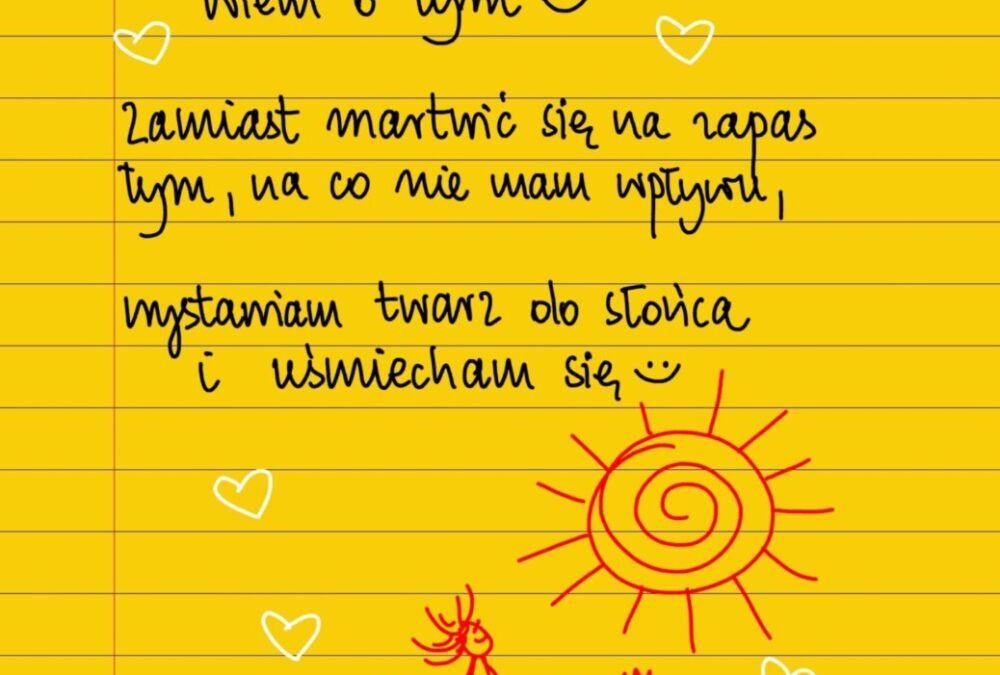 wiem o tym
Zamiast martwić się na zapas
tym, na co nie mam wpływu,
wystawiam twarz do słońca
i uśmiecham się